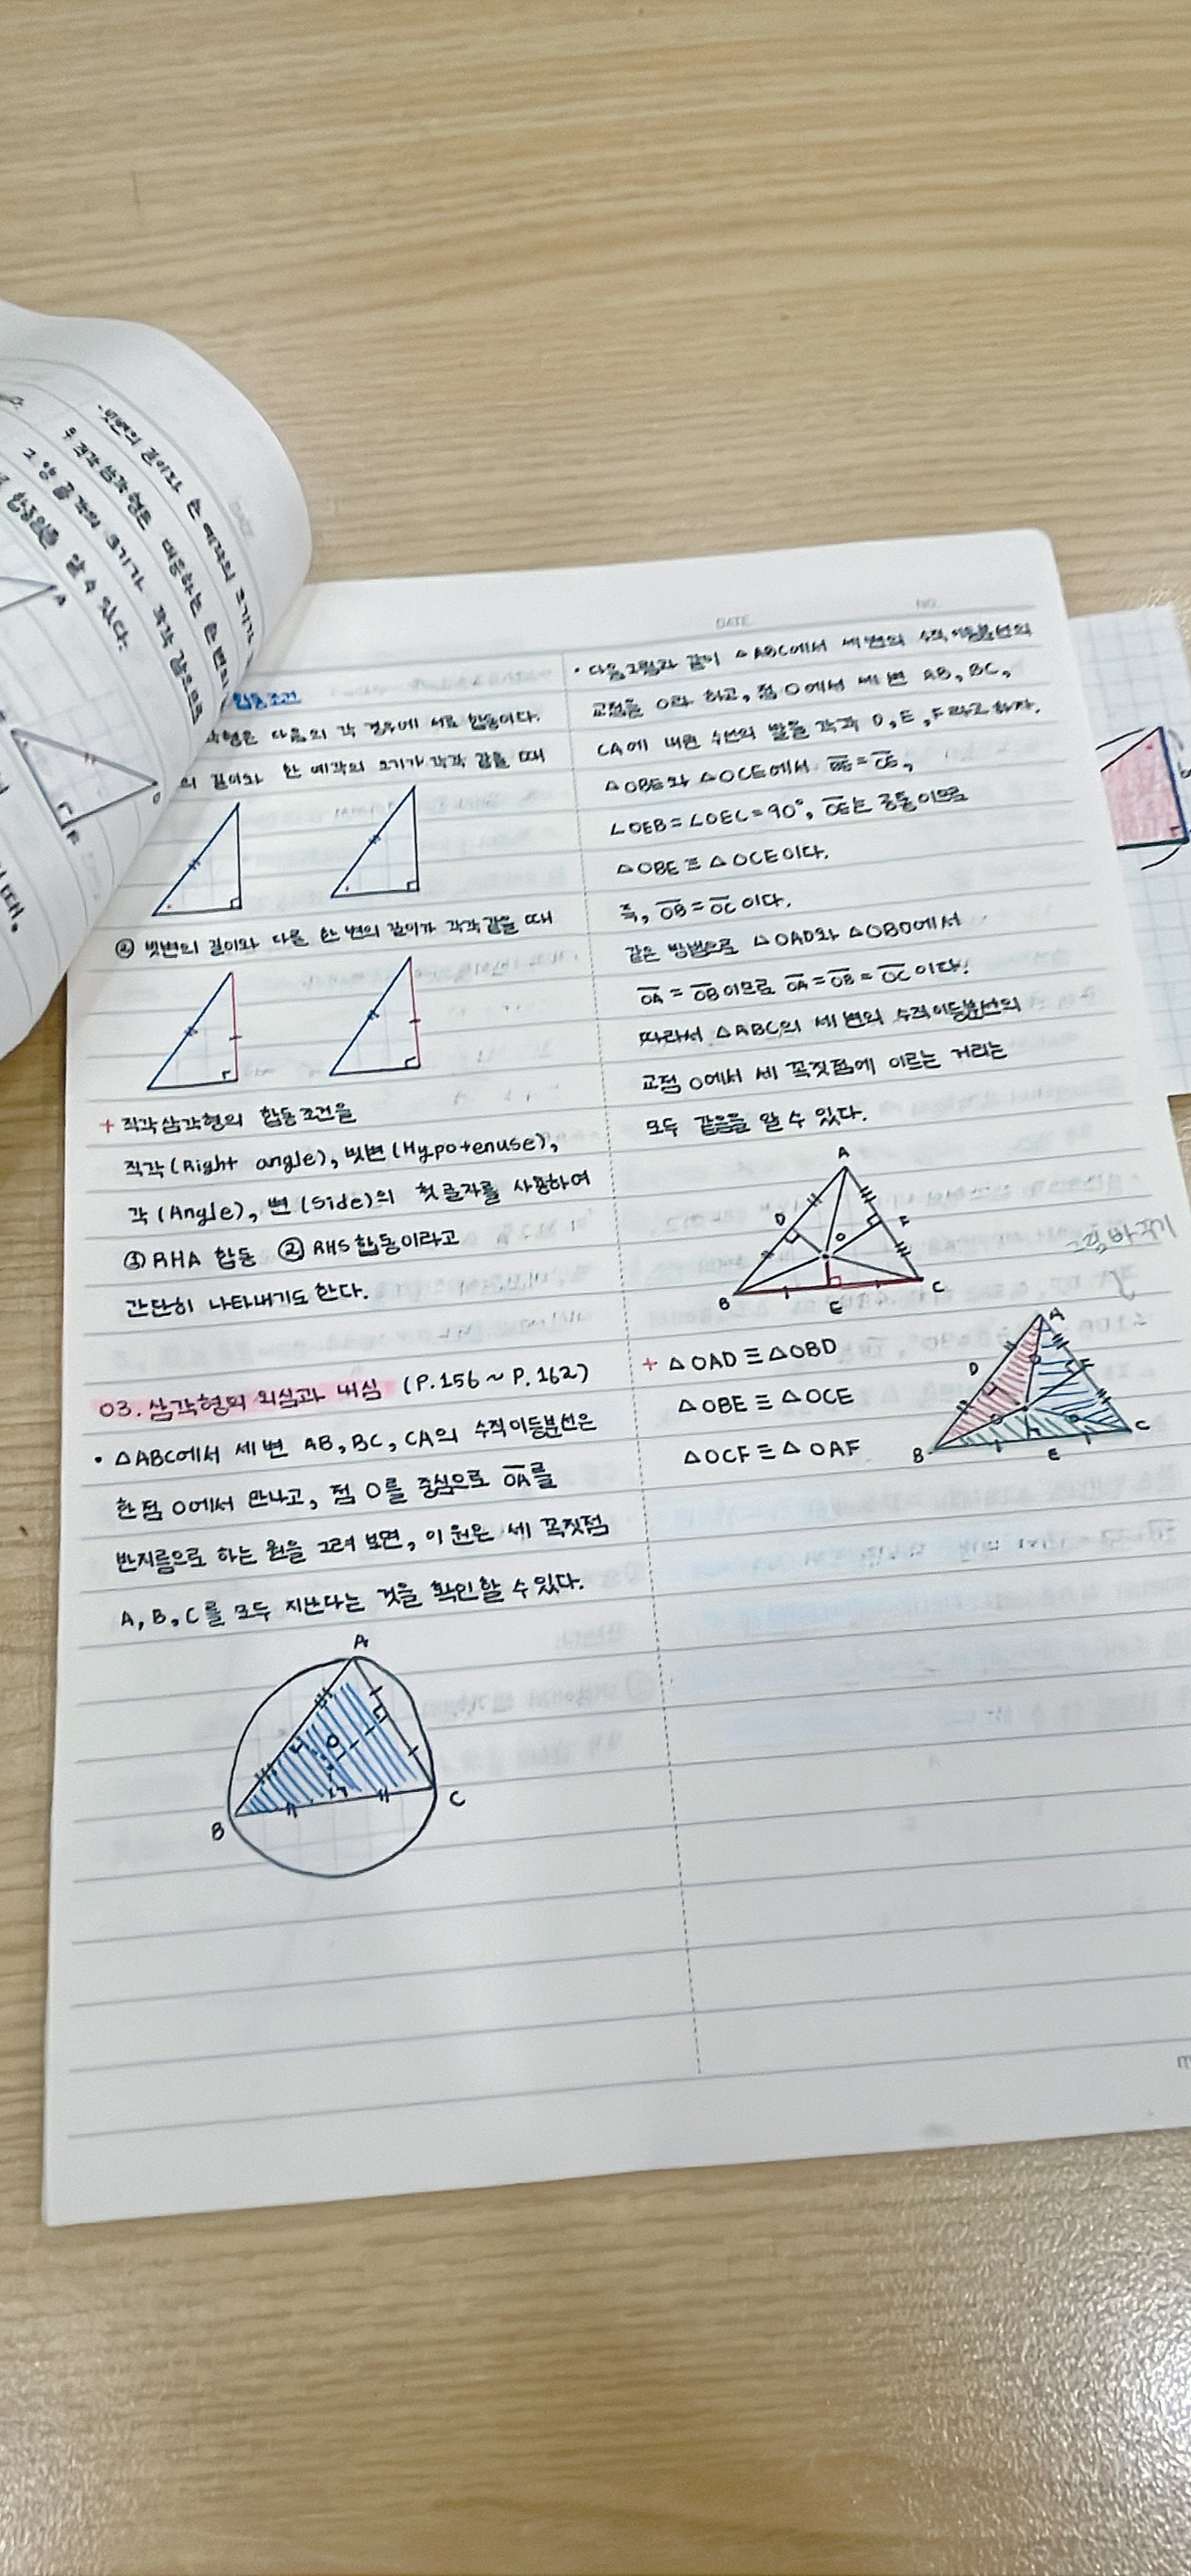 DATE
NO.
합동조건
각형은 다음의 각 경우에 서로 합동이다.
의 길이와 한 예각의 크기가 각각 같을 때
② 빗변의 길이와 다른 한 변의 길이가 각각 같을 때
+ 직각삼각형의 합동조건을
직각(Right angle), 빗변(Hypotenuse),
각(Angle), 변(Side)의 첫 글자를 사용하여
① RHA 합동 ② RHS 합동이라고
간단히 나타내기도 한다.
03. 삼각형의 외심과 내심 (P.156 ~ P.162)
• △ABC에서 세 변 AB, BC, CA의 수직이등분선은
한 점 O에서 만나고, 점 O를 중심으로 OA를
반지름으로 하는 원을 그려 보면, 이 원은 세 꼭짓점
A, B, C를 모두 지난다는 것을 확인할 수 있다.
A
O
B
C
• 다음 그림과 같이 △ABC에서 세 변의 수직이등분선의
교점을 O라 하고, 점 O에서 세 변 AB, BC,
CA에 내린 수선의 발을 각각 D, E, F라고 하자.
△OBE와 △OCE에서 BE = CE,
∠OEB = ∠OEC = 90°, OE는 공통이므로
△OBE ≡ △OCE이다.
즉, OB = OC이다.
같은 방법으로 △OAD와 △OBD에서
OA = OB이므로 OA = OB = OC이다.
따라서 △ABC의 세 변의 수직이등분선의
교점 O에서 세 꼭짓점에 이르는 거리는
모두 같음을 알 수 있다.
A
D
F
O
B
E
C
그림 바꾸기
+ △OAD ≡ △OBD
△OBE ≡ △OCE
△OCF ≡ △OAF
A
D
F
B
E
C
빗변의 길이와 한 예각의 크기가
두 직각삼각형은 대응하는 한 변의
그 양 끝 각의 크기가 각각 같으므로
합동임을 알 수 있다.
A
D
F
때.